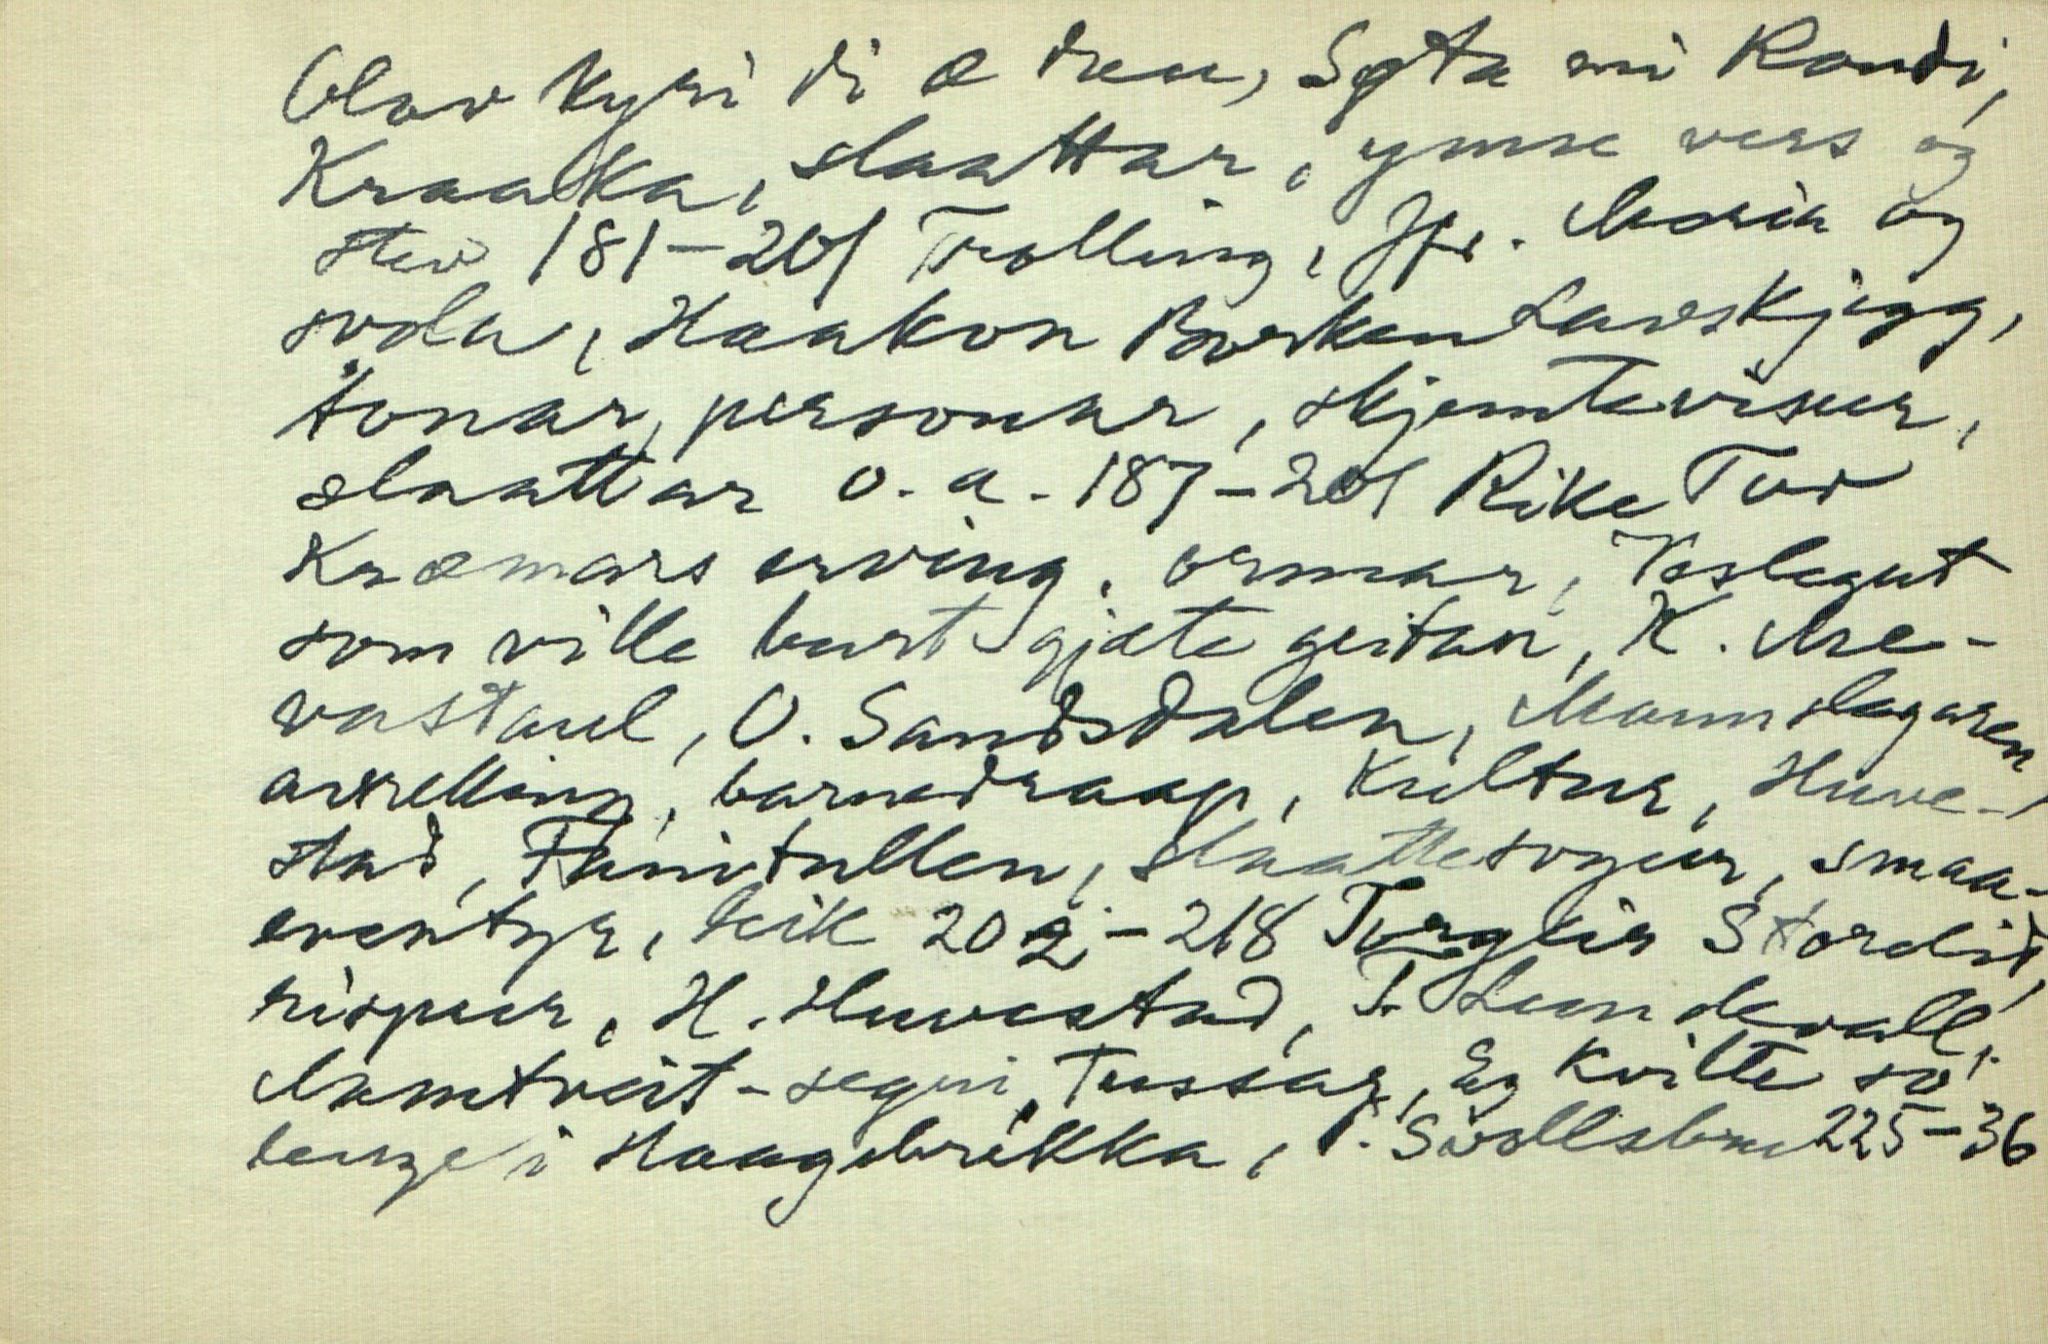 Olav Kyri di æ dæ, Sqta mi Randi,
Kraaka, slaattar, ymse vers og
stev 181-201 Trolling, Jfr. Maria og
soda, Haakon Borken Lavskjegg,
tonar, personar, skjemtevisur,
slaattar o.a. 187-201 Rike Tov
Kræmars erving, ormar, Veslegut
som ville burt gjæte geitan, K. Me-
vastaul, O. Sandsdalen, Mannslagaren
avrelling, barnedraap, Kultur, Huve-
stad, Fanitullen, slaattesogur, smaa-
eventyr, leik 202-218 Torgeir Stordit,
rispur, H. Huvestad, T. Lundevall,
Mamtveit-segni, Tussar, Eg kvilte so
lenge i Haagebrikka, T. 225-36